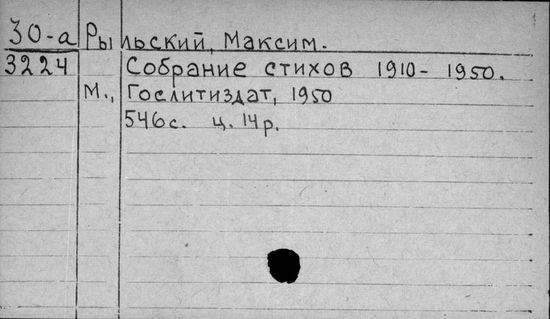 30-а Рыльский, Максим.
3224 Собрание стихов 1910-1950.
М., Гослитиздат, 1950
546с. ц. 14р.